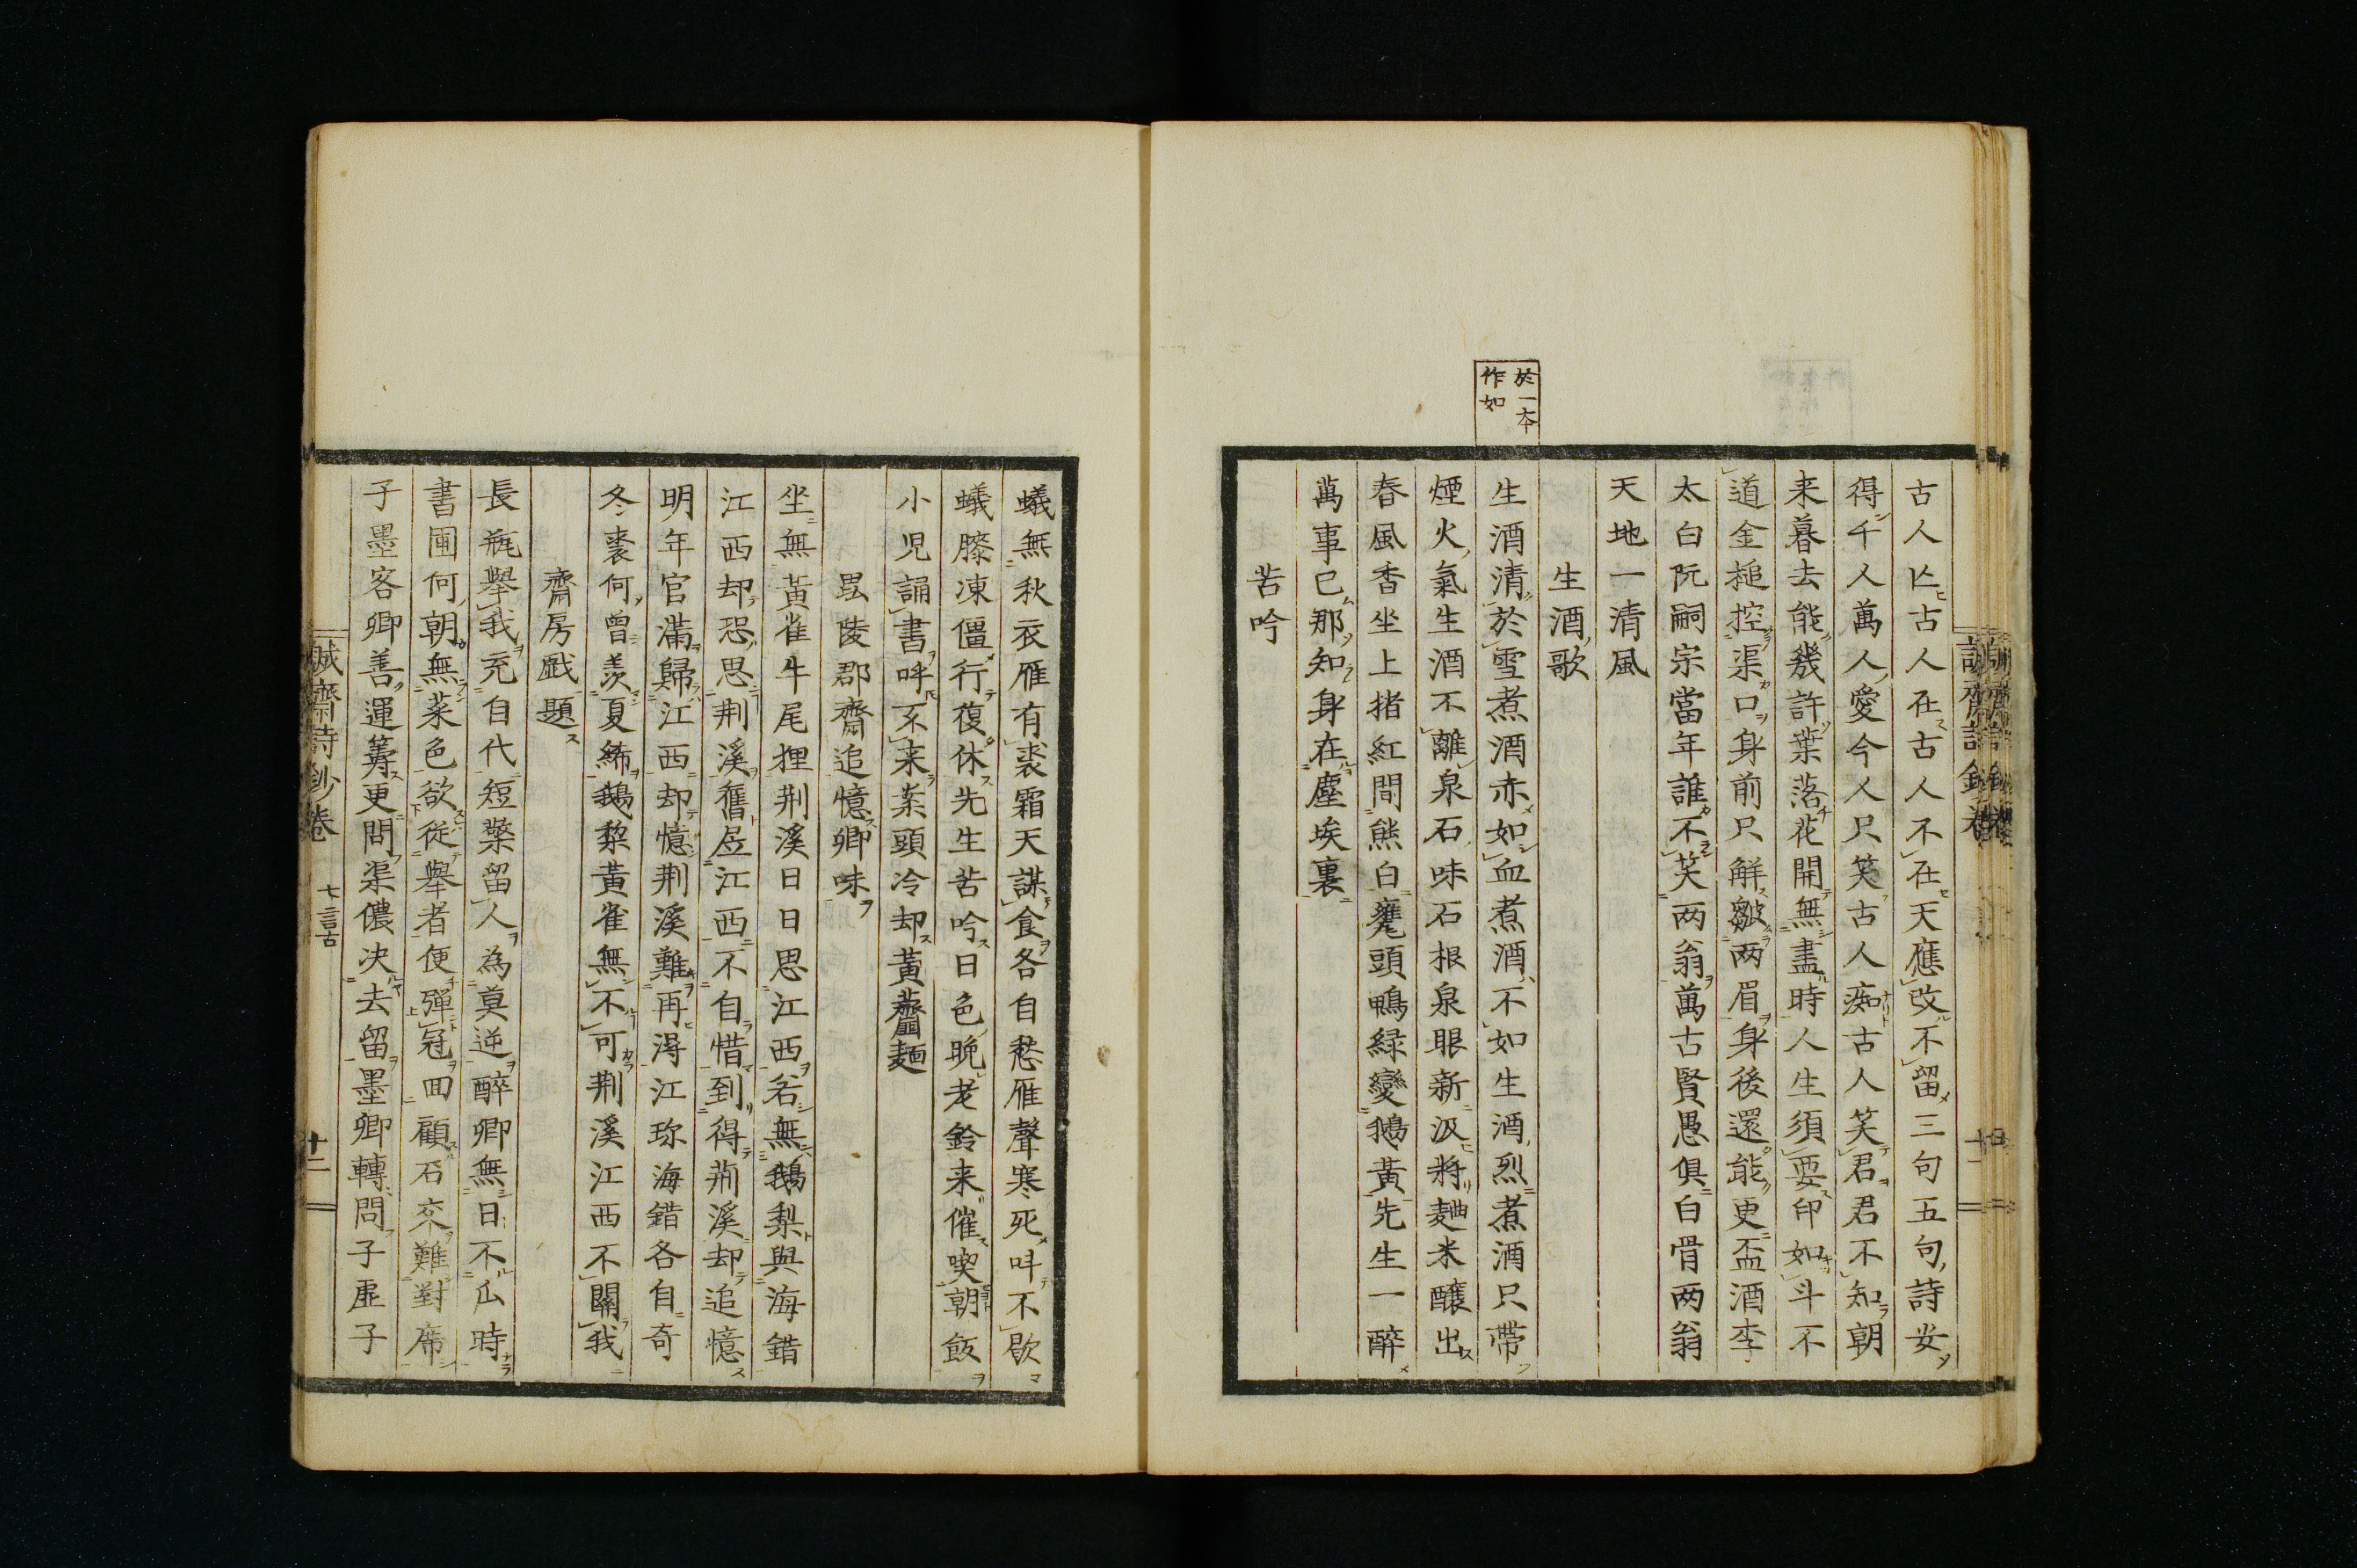 於一本
作如
古人亾古人在古人不在天應改不留三句五句詩妛
得千人萬人愛今人只笑古人痴古人笑君君不知朝
来暮去能幾許葉落花開無盡時人生須要印如斗不
道金搥控渠口身前只解皺两眉身後還能更盃酒李
太白阮嗣宗當年誰不笑两翁萬古賢愚俱白骨两翁
天地一清風
生酒歌
生酒清於雪煮酒赤如血煮酒不如生酒烈煮酒只帶
煙火氣生酒不離泉石味石根泉眼新汲將麯米釀出
春風香坐上猪紅間熊白甕頭鴨緑變鵝黃先生一醉
萬事已那知身在塵埃裏
苦吟
蟻無秋衣雁有裘霜天謀食各自愁雁聲寒死叫不歇
蟻膝凍僵行復休先生苦吟日色晩老鈴来催喫朝飯
小児誦書呼不来案頭冷却黃虀麺
毘陵郡齋追憶郷味
坐無黃雀牛尾狸荆溪日日思江西若無鵝梨與海錯
江西却恐思荆溪舊居江西不自惜到得荊溪却追憶
明年官滿歸江西却憶荆溪難再得江珎海錯各自奇
冬裘何曾羨夏絺鵝梨黃雀無不可荆溪江西不關我
齋房戯題
長瓶擧我充自代短檠留人為莫逆醉郷無日不瓜時
書圃何朝無菜色欲從擧者便彈冠囬顧石交難對席
子墨客卿善運籌更問渠儂决去留墨卿轉問子虚子
誠齋詩鈔卷 七言古 十二